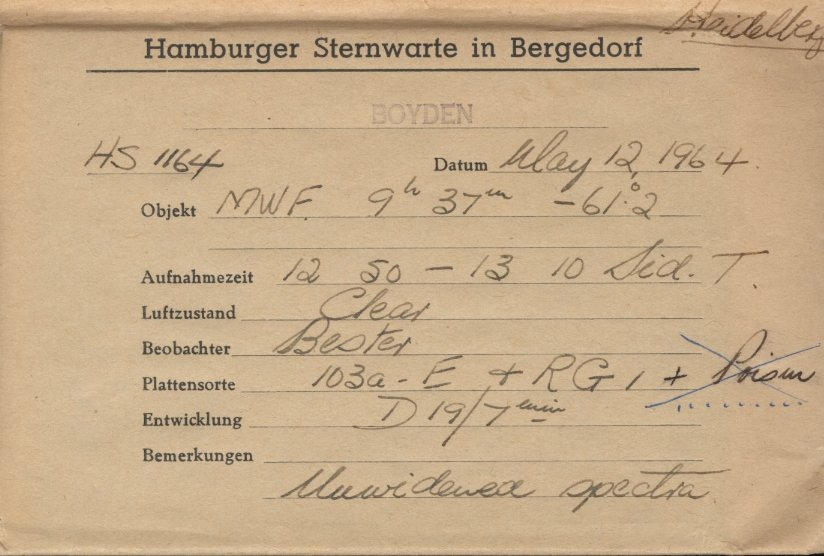 Heidelberg
Hamburger Sternwarte in Bergedorf
BOYDEN
HS 1164 Datum May 12, 1964.
Objekt MWF 9h 37m -61°.2
Aufnahmezeit 12 50 - 13 10 Sid. T.
Luftzustand Clear
Beobachter Bester
Plattensorte 103a-E + RG 1 + Prism
Entwicklung D19/7 min
Bemerkungen
Unwidened spectra.